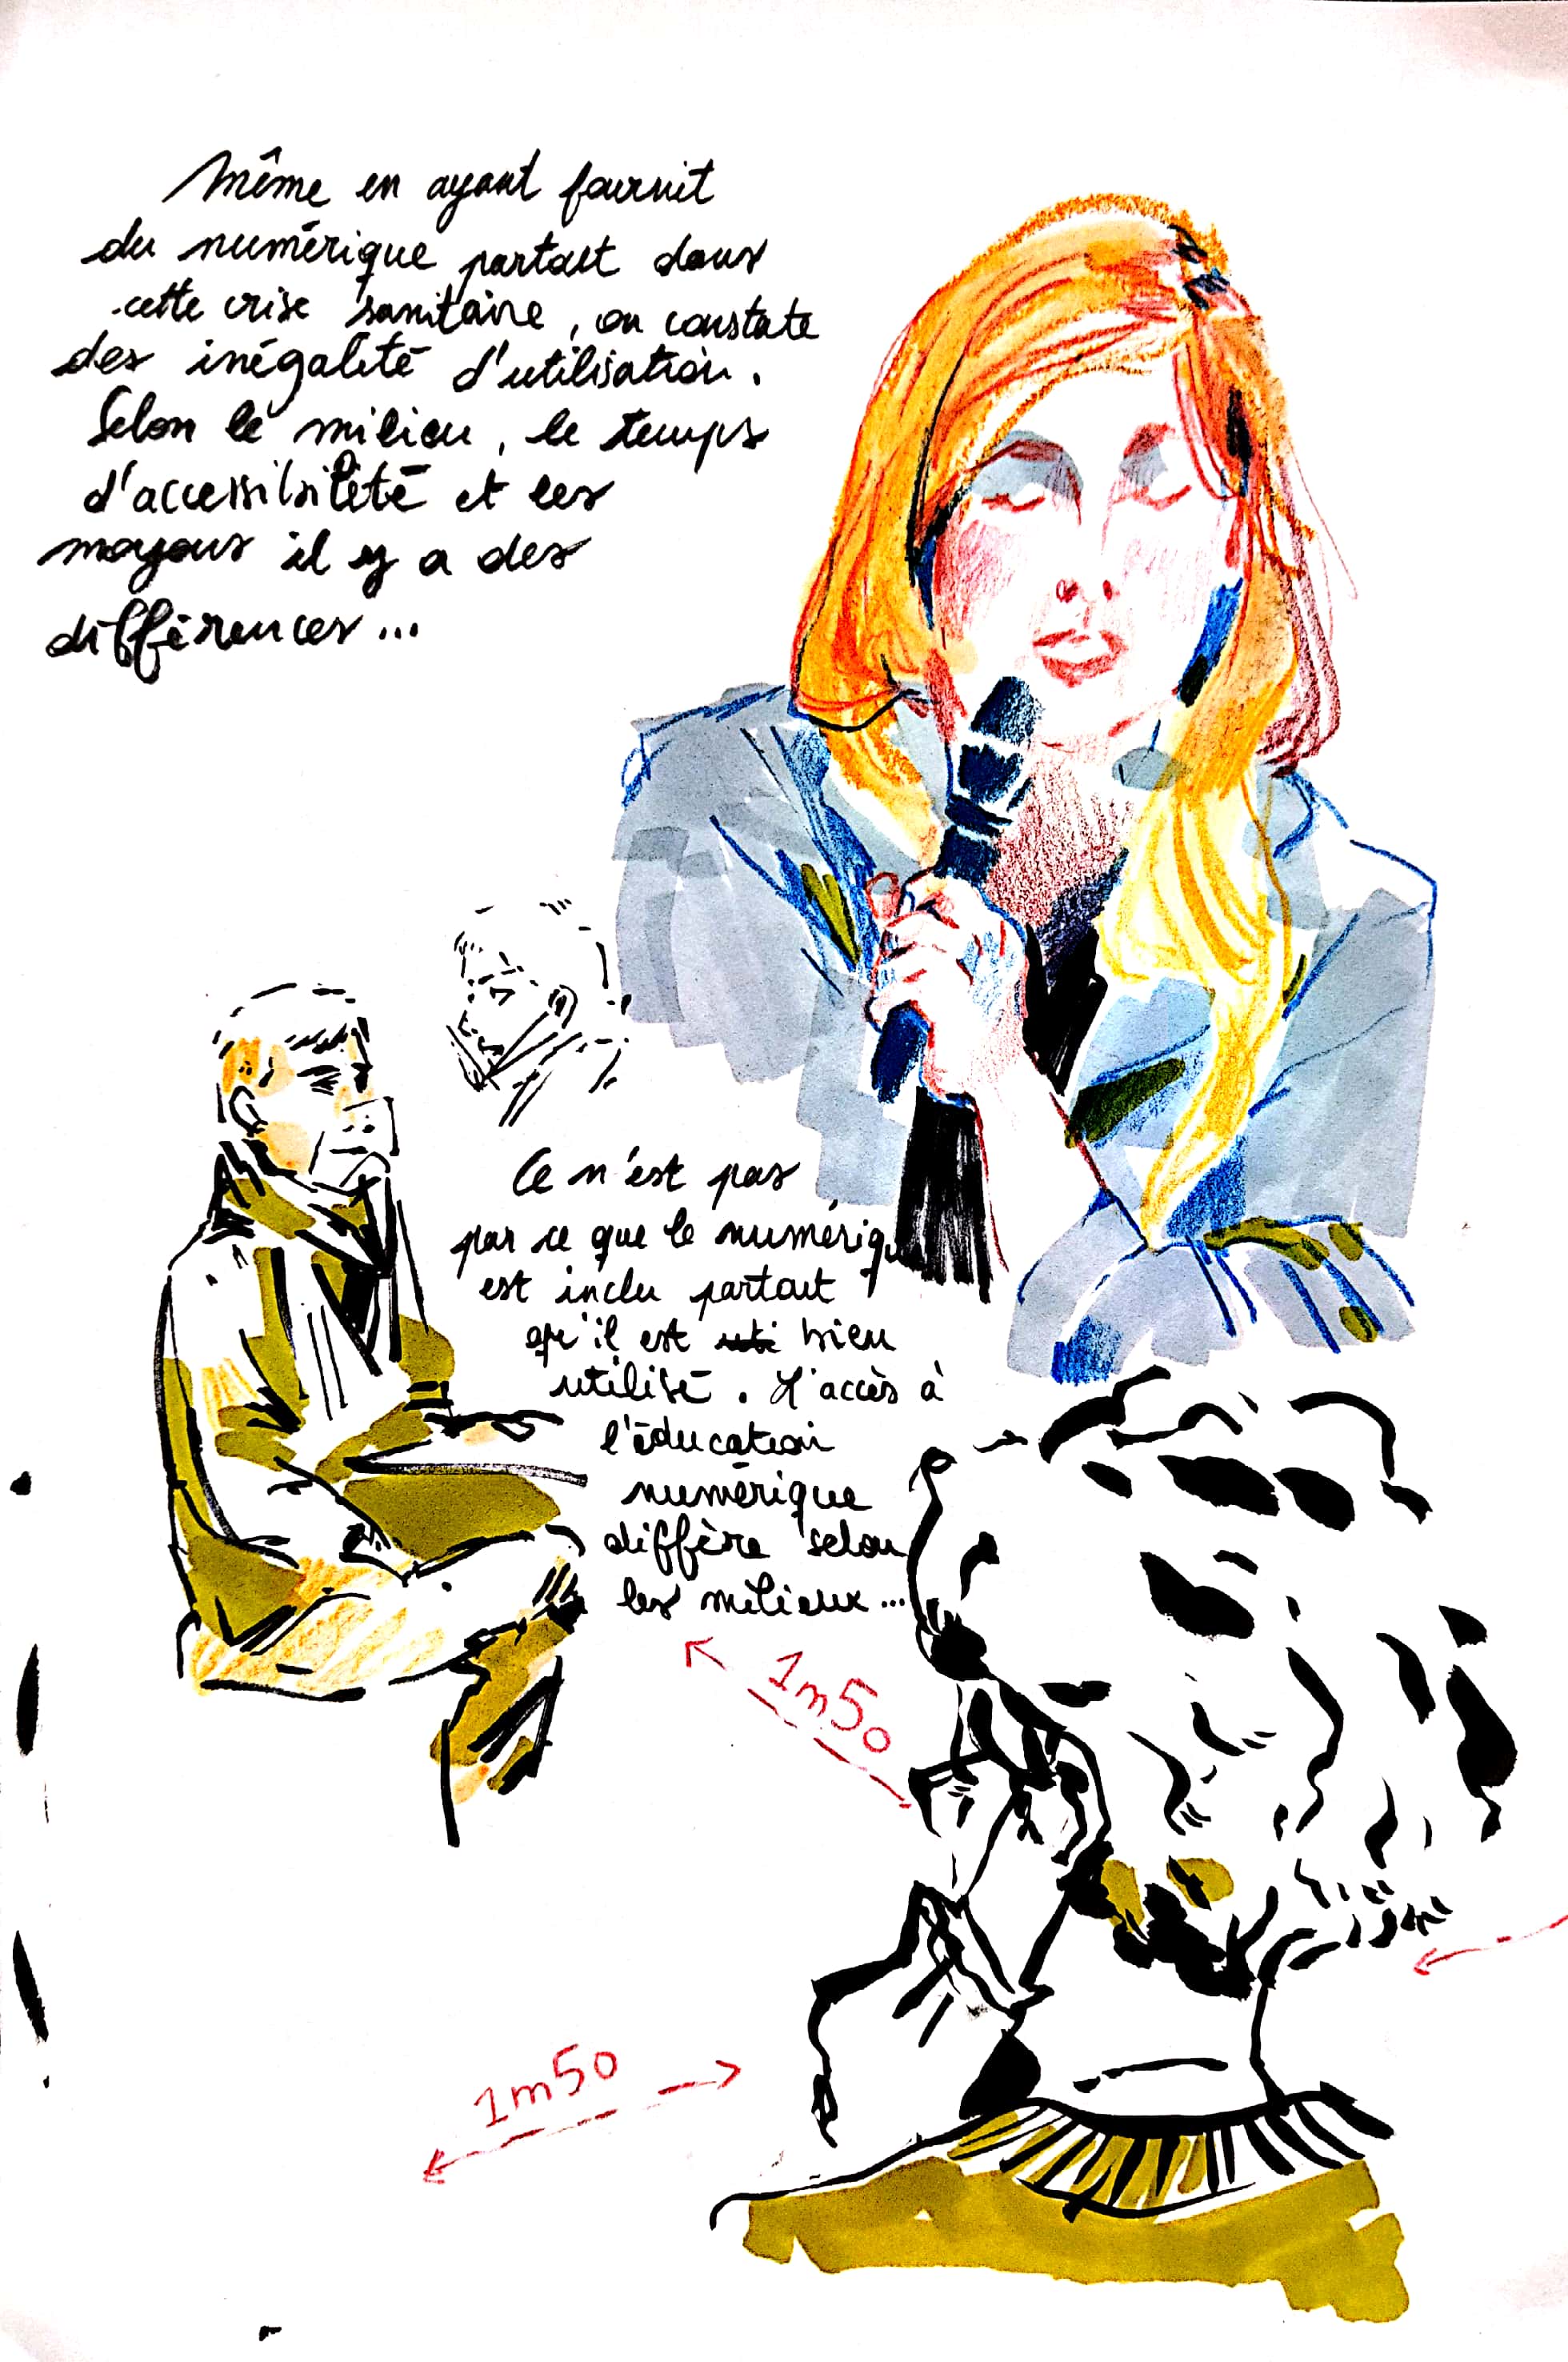 Même en ayant fournit
du numérique partout dans
cette crise sanitaire, on constate
des inégalité d'utilisation.
Selon le milieu, le temps
d'accessibilité et les
moyens il y a des
différences...
Ce n'est pas
par ce que le numérique
est inclu partout
qu'il est uti bien
utilisé. L'accès à
l'éducation
numérique
diffère selon
les milieux...
1m50
1m50